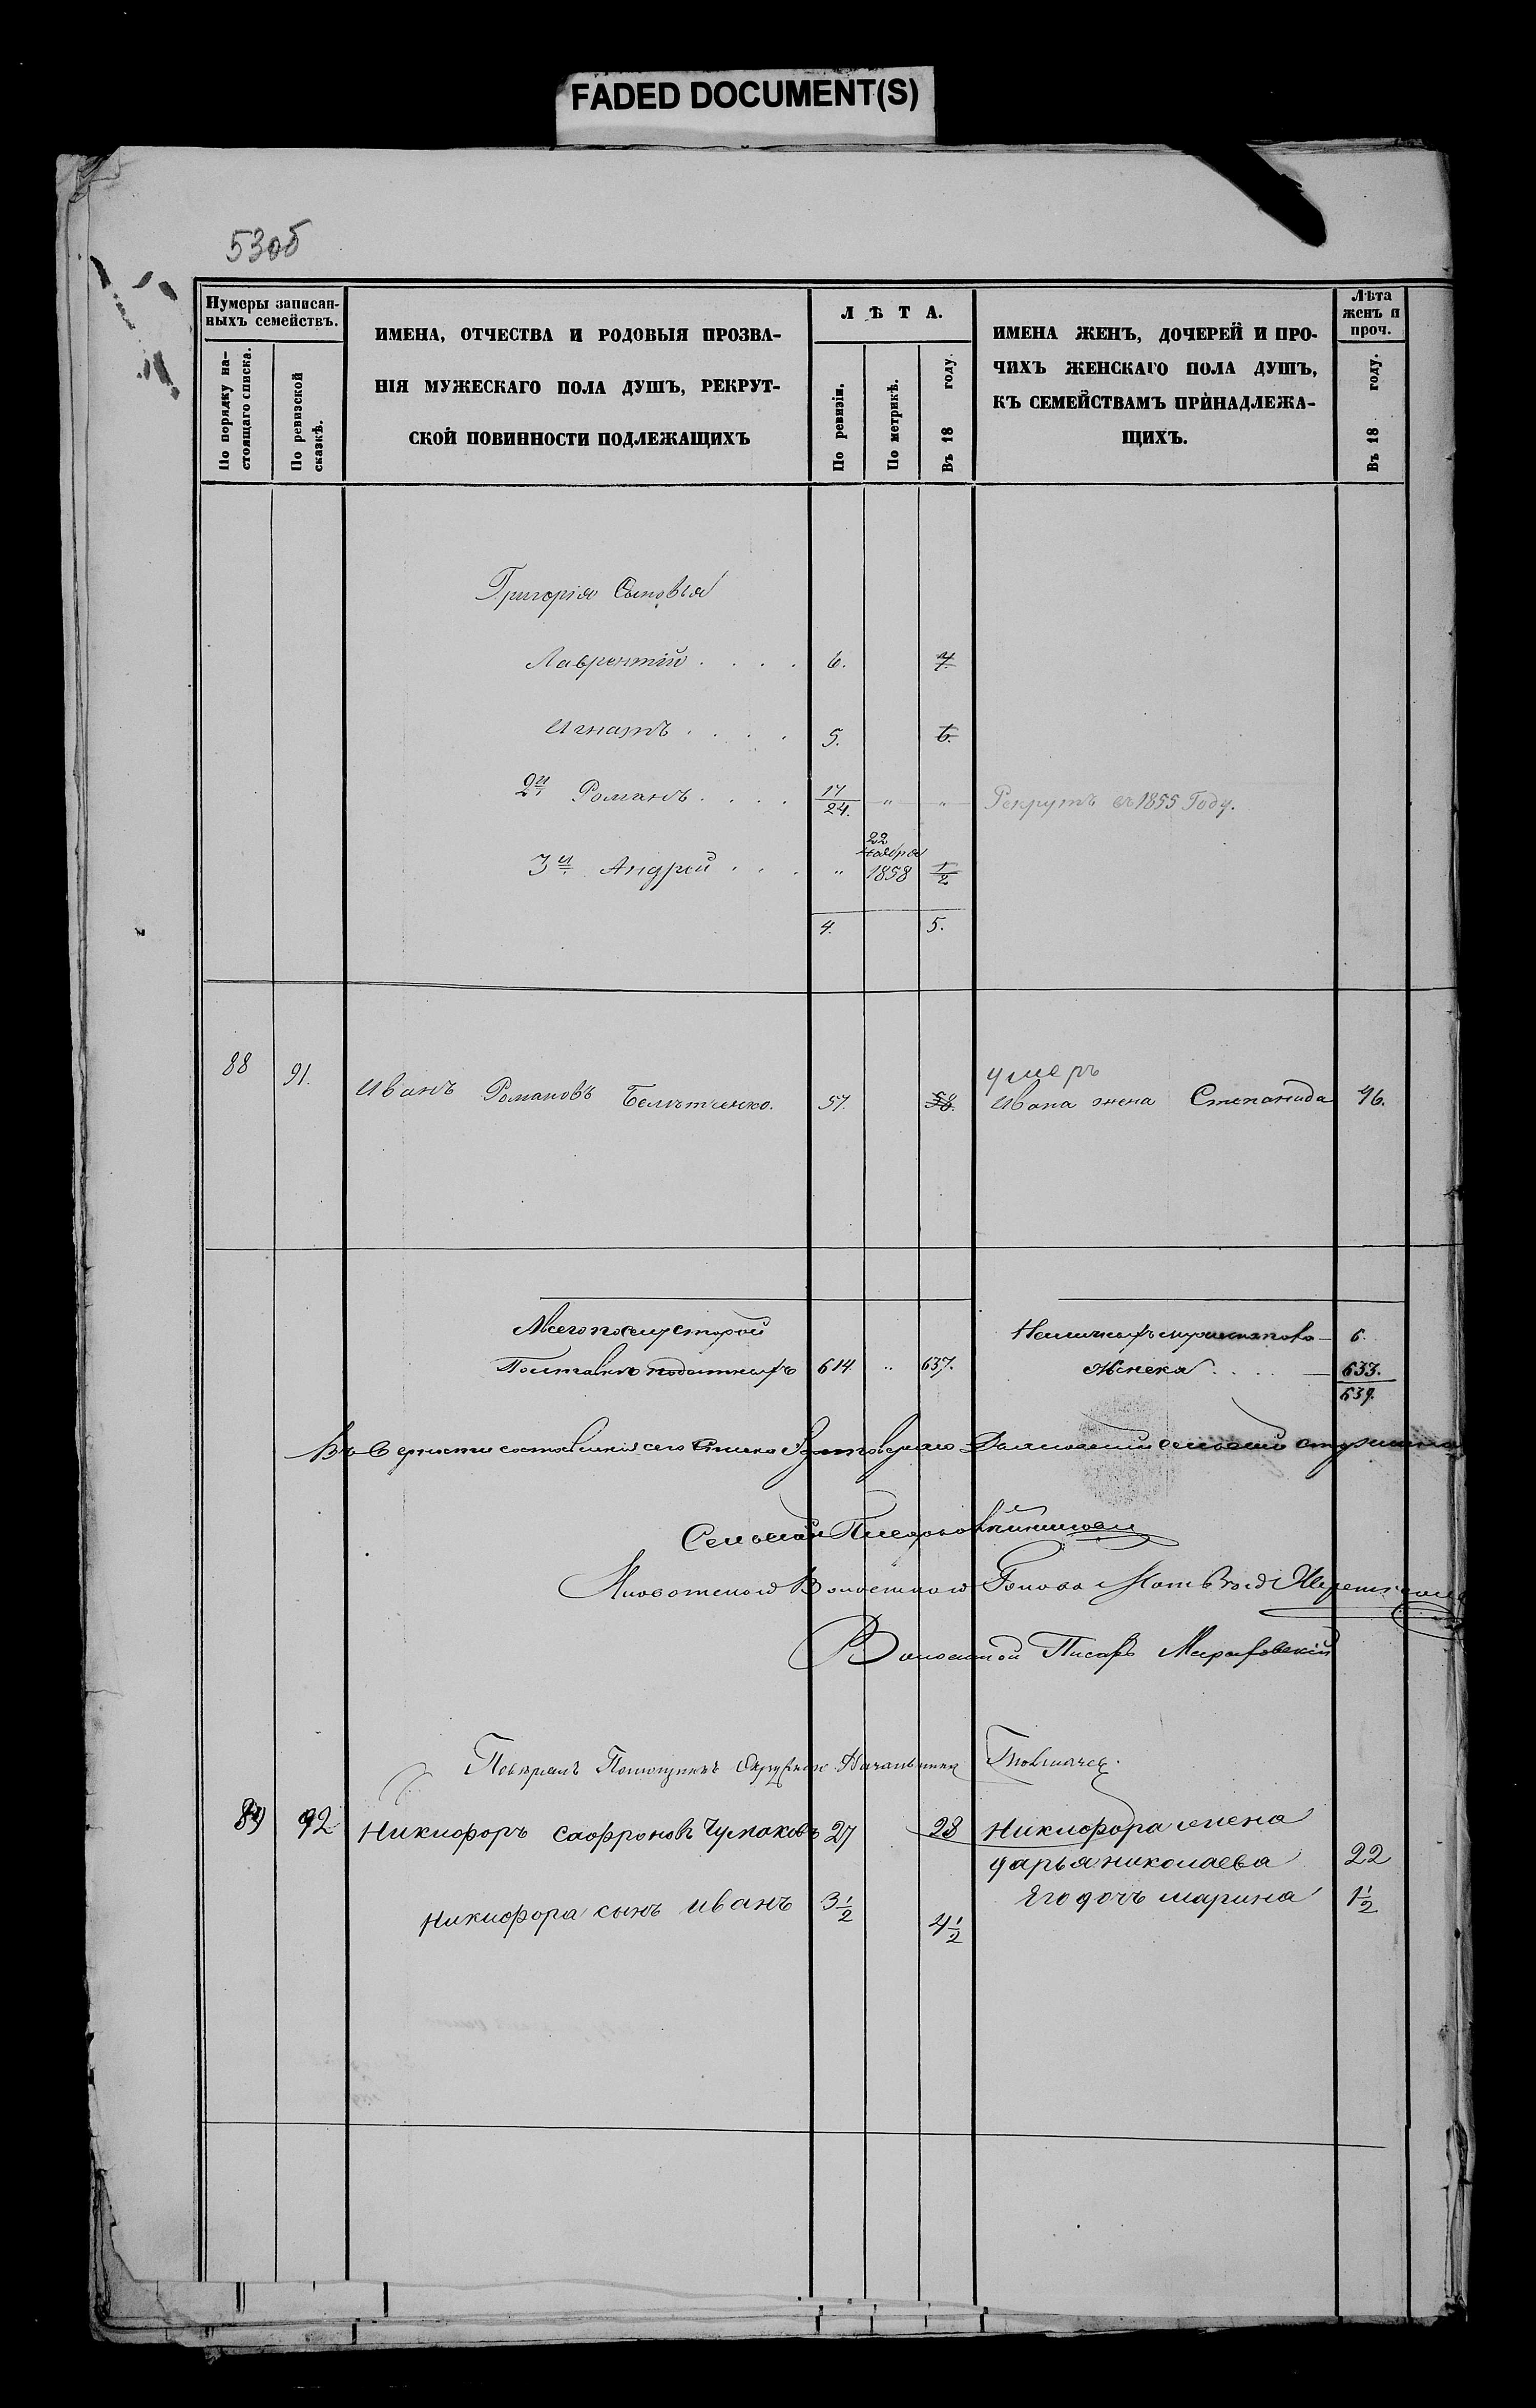 FADED DOCUMENT(S)
53об
Нумеры записан-
ныхъ семействъ.
По порядку на-
стоящаго списка.
По ревизской
сказкѣ.
ИМЕНА, ОТЧЕСТВА И РОДОВЫЯ ПРОЗВА-
НІЯ МУЖЕСКАГО ПОЛА ДУШЪ, РЕКРУТ-
СКОЙ ПОВИННОСТИ ПОДЛЕЖАЩИХЪ
ЛѢТА.
По ревизіи.
По метрикѣ.
Въ 18 году.
ИМЕНА ЖЕНЪ, ДОЧЕРЕЙ И ПРО-
ЧИХЪ ЖЕНСКАГО ПОЛА ДУШЪ,
КЪ СЕМЕЙСТВАМЪ ПРИНАДЛЕЖА-
ЩИХЪ.
Лѣта
женъ и
проч.
Въ 18 году.
Григорія Сыновья
Лаврентій . . . . 6. 7.
Игнатъ . . . . 5. 6.
2й Романъ . . . . 17/24. " " Рекрутъ въ 1855 Году.
22
3й Андрей . . . " 1858 1/2
4. 5.
88 91. Иванъ Романовъ 57. 58.
умеръ
Ивана жена Степанида 46.
614 " 637.
6.
Женска . . . . 633.
639.
Сельскій
Волостной Голова
Волостной Писарь
Повѣрялъ Помощникъ Окружнаго Начальника
89 92 Никифоръ Сафроновъ Чумаковъ 27 28 Никифора жена
Дарья Николаева 22
Никифора сынъ Иванъ 3 1/2 4 1/2 Его дочь Марина 1 1/2